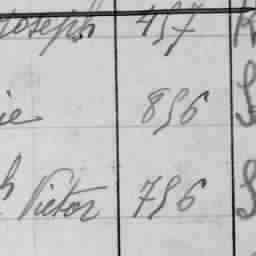 Joseph 457
ie 856
h Victor 756